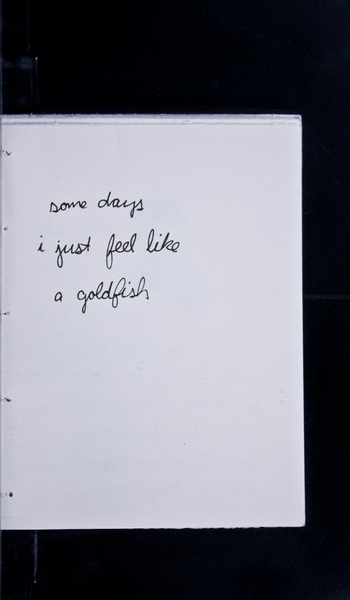 some days
i just feel like
a goldfish